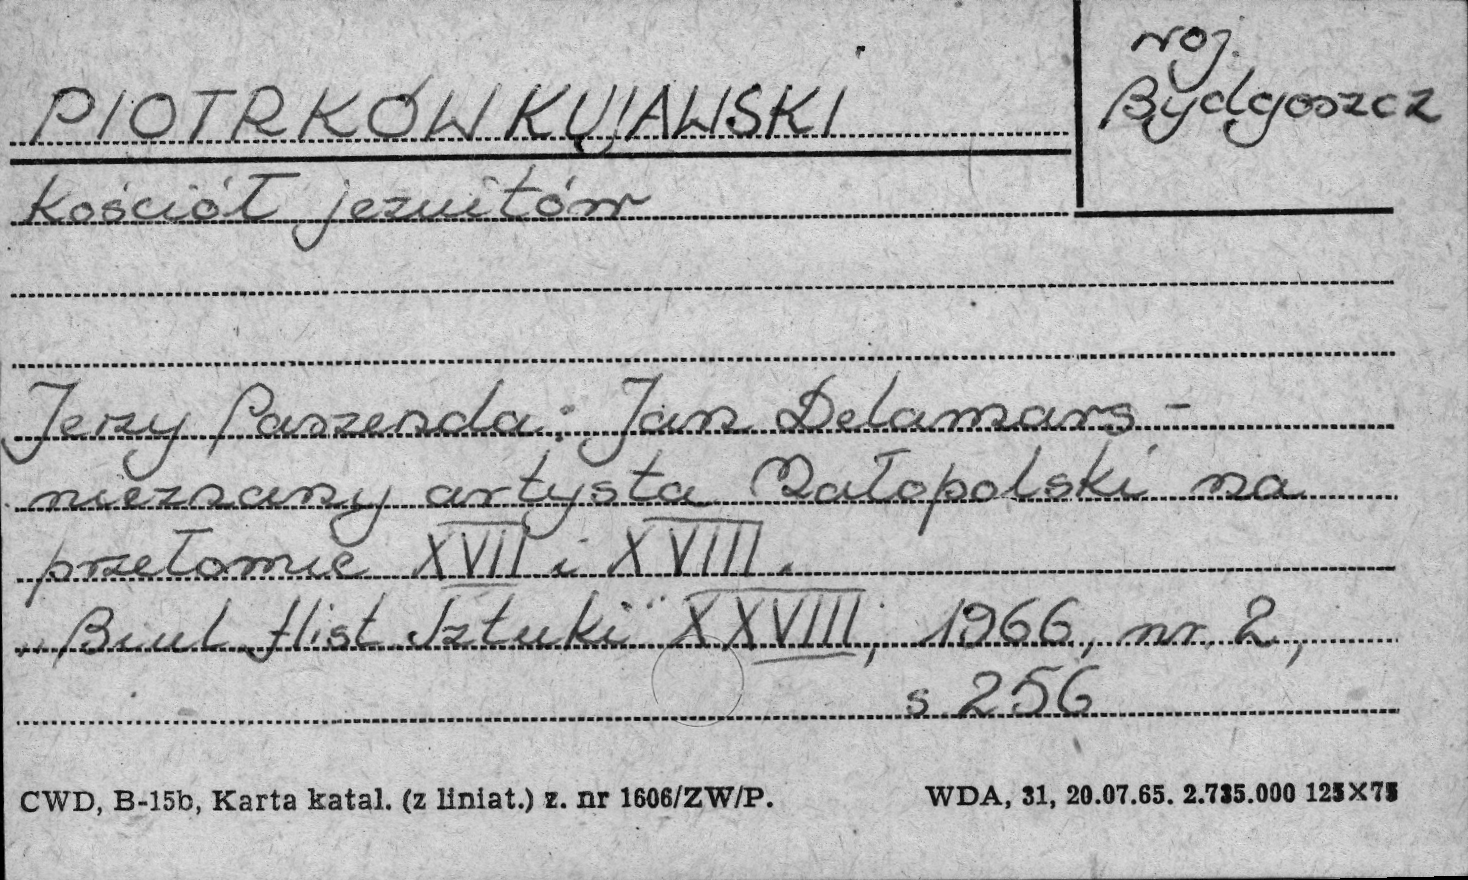 PIOTRKÓW KUJAWSKI
woj.
Bydgoszcz
kościół jezuitów
Jerzy Paszenda: Jan Delamars -
nieznany artysta Małopolski na
przełomie XVII i XVIII.
„Biul. Hist. Sztuki" XXVIII, 1966, nr 2,
s. 256
CWD, B-15b, Karta katal. (z liniat.) z. nr 1606/ZW/P.
WDA, 31, 20.07.65. 2.735.000 125×75